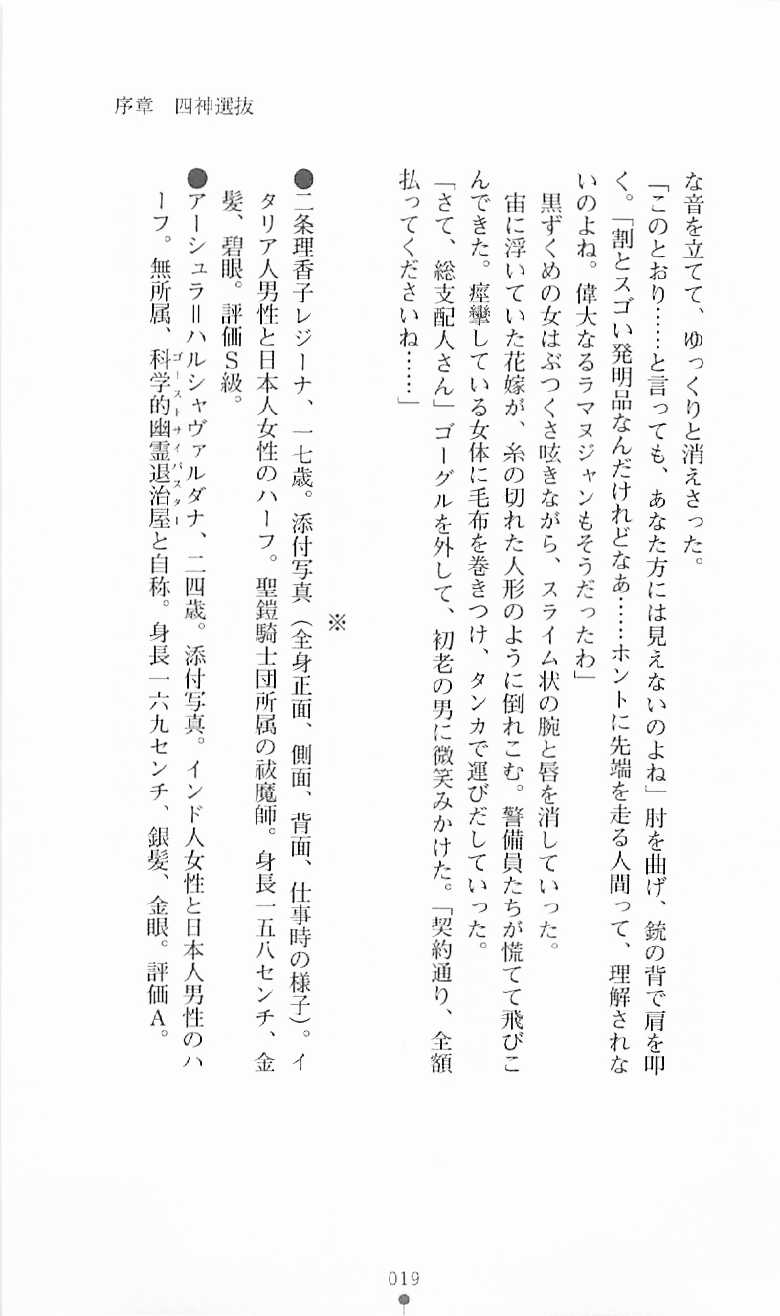 序章　四神選抜
な音を立てて、ゆっくりと消えさった。
「このとおり……と言っても、あなた方には見えないのよね」肘を曲げ、銃の背で肩を叩
く。「割とスゴい発明品なんだけれどなぁ……ホントに先端を走る人間って、理解されな
いのよね。偉大なるラマヌジャンもそうだったわ」
黒ずくめの女はぶつくさ呟きながら、スライム状の腕と唇を消していった。
宙に浮いていた花嫁が、糸の切れた人形のように倒れこむ。警備員たちが慌てて飛びこ
んできた。痙攣している女体に毛布を巻きつけ、タンカで運びだしていった。
「さて、総支配人さん」ゴーグルを外して、初老の男に微笑みかけた。「契約通り、全額
払ってくださいね……」
※
●二条理香子レジーナ、一七歳。添付写真（全身正面、側面、背面、仕事時の様子）。イ
タリア人男性と日本人女性のハーフ。聖鎧騎士団所属の祓魔師。身長一五八センチ、金
髪、碧眼。評価Ｓ級。
●アーシュラ＝ハルシャヴァルダナ、二四歳。添付写真。インド人女性と日本人男性のハ
ーフ。無所属、科学的幽霊退治屋と自称。身長一六九センチ、銀髪、金眼。評価Ａ。
ゴーストサイバスター
019